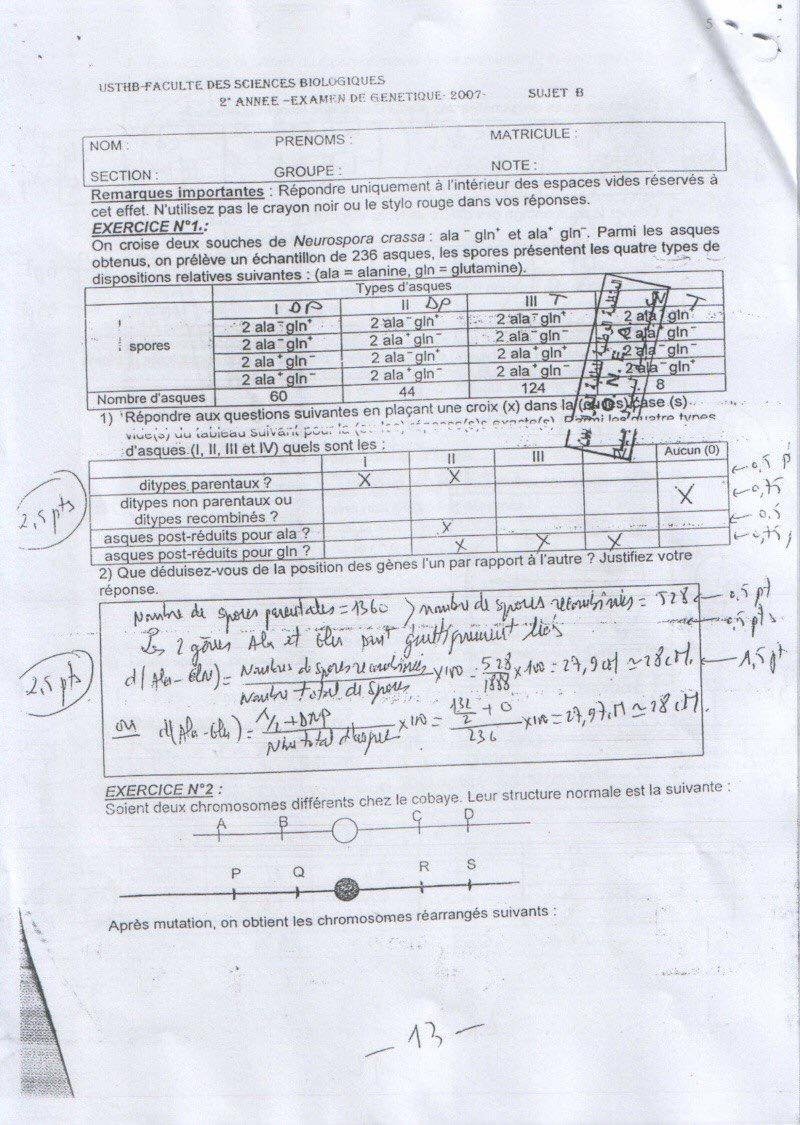 5
USTHB-FACULTE DES SCIENCES BIOLOGIQUES
2° ANNEE -EXAMEN DE GENETIQUE- 2007- SUJET B
NOM : PRENOMS : MATRICULE :
SECTION : GROUPE : NOTE :
Remarques importantes : Répondre uniquement à l'intérieur des espaces vides réservés à
cet effet. N'utilisez pas le crayon noir ou le stylo rouge dans vos réponses.
EXERCICE N°1.:
On croise deux souches de Neurospora crassa : ala⁻ gln⁺ et ala⁺ gln⁻. Parmi les asques
obtenus, on prélève un échantillon de 236 asques, les spores présentent les quatre types de
dispositions relatives suivantes : (ala = alanine, gln = glutamine).
Types d'asques
I DP II DP III T IV T
spores
2 ala⁻gln⁺ 2 ala⁻gln⁺ 2 ala⁻gln⁺ 2 ala gln
2 ala⁻gln⁺ 2 ala⁺gln⁻ 2 ala gln⁻
2 ala⁺gln⁻ 2 ala⁻gln⁺ 2 ala⁺gln⁺ 2 ala gln⁻
2 ala⁺gln⁻ 2 ala⁺gln⁻ 2 ala⁺gln⁻ 2 ala gln⁺
Nombre d'asques 60 44 124 8
1) Répondre aux questions suivantes en plaçant une croix (x) dans la (ou les) case (s)
vide(s) du tableau suivant pour la (ou les) réponse(s) exacte(s). Parmi les quatre types
d'asques (I, II, III et IV) quels sont les :
I II III Aucun (0)
ditypes parentaux ? X X 0,5 p
ditypes non parentaux ou X 0,75
ditypes recombinés ?
asques post-réduits pour ala ? X 0,5
asques post-réduits pour gln ? X X X 0,75
2,5 pts
2) Que déduisez-vous de la position des gènes l'un par rapport à l'autre ? Justifiez votre
réponse.
Nombre de spores parentales = 1360 > nombre de spores recombinés = 528 0,5 pt
Les 2 gènes Ala et Gln sont génétiquement liés 0,5 pt
d(Ala-Gln) = Nombres de spores recombinés / Nombre total de spores x100 = 528/1888 x 100 = 27,9 cM ≃ 28 cM. 1,5 pt
2,5 pts
ou d(Ala-Gln) = T/2 + DNP / Nbre total d'asques x100 = 132/2 + 0 / 236 x100 = 27,97cM ≃ 28 cM.
EXERCICE N°2 :
Soient deux chromosomes différents chez le cobaye. Leur structure normale est la suivante :
A B C D
P Q R S
Après mutation, on obtient les chromosomes réarrangés suivants :
- 13 -